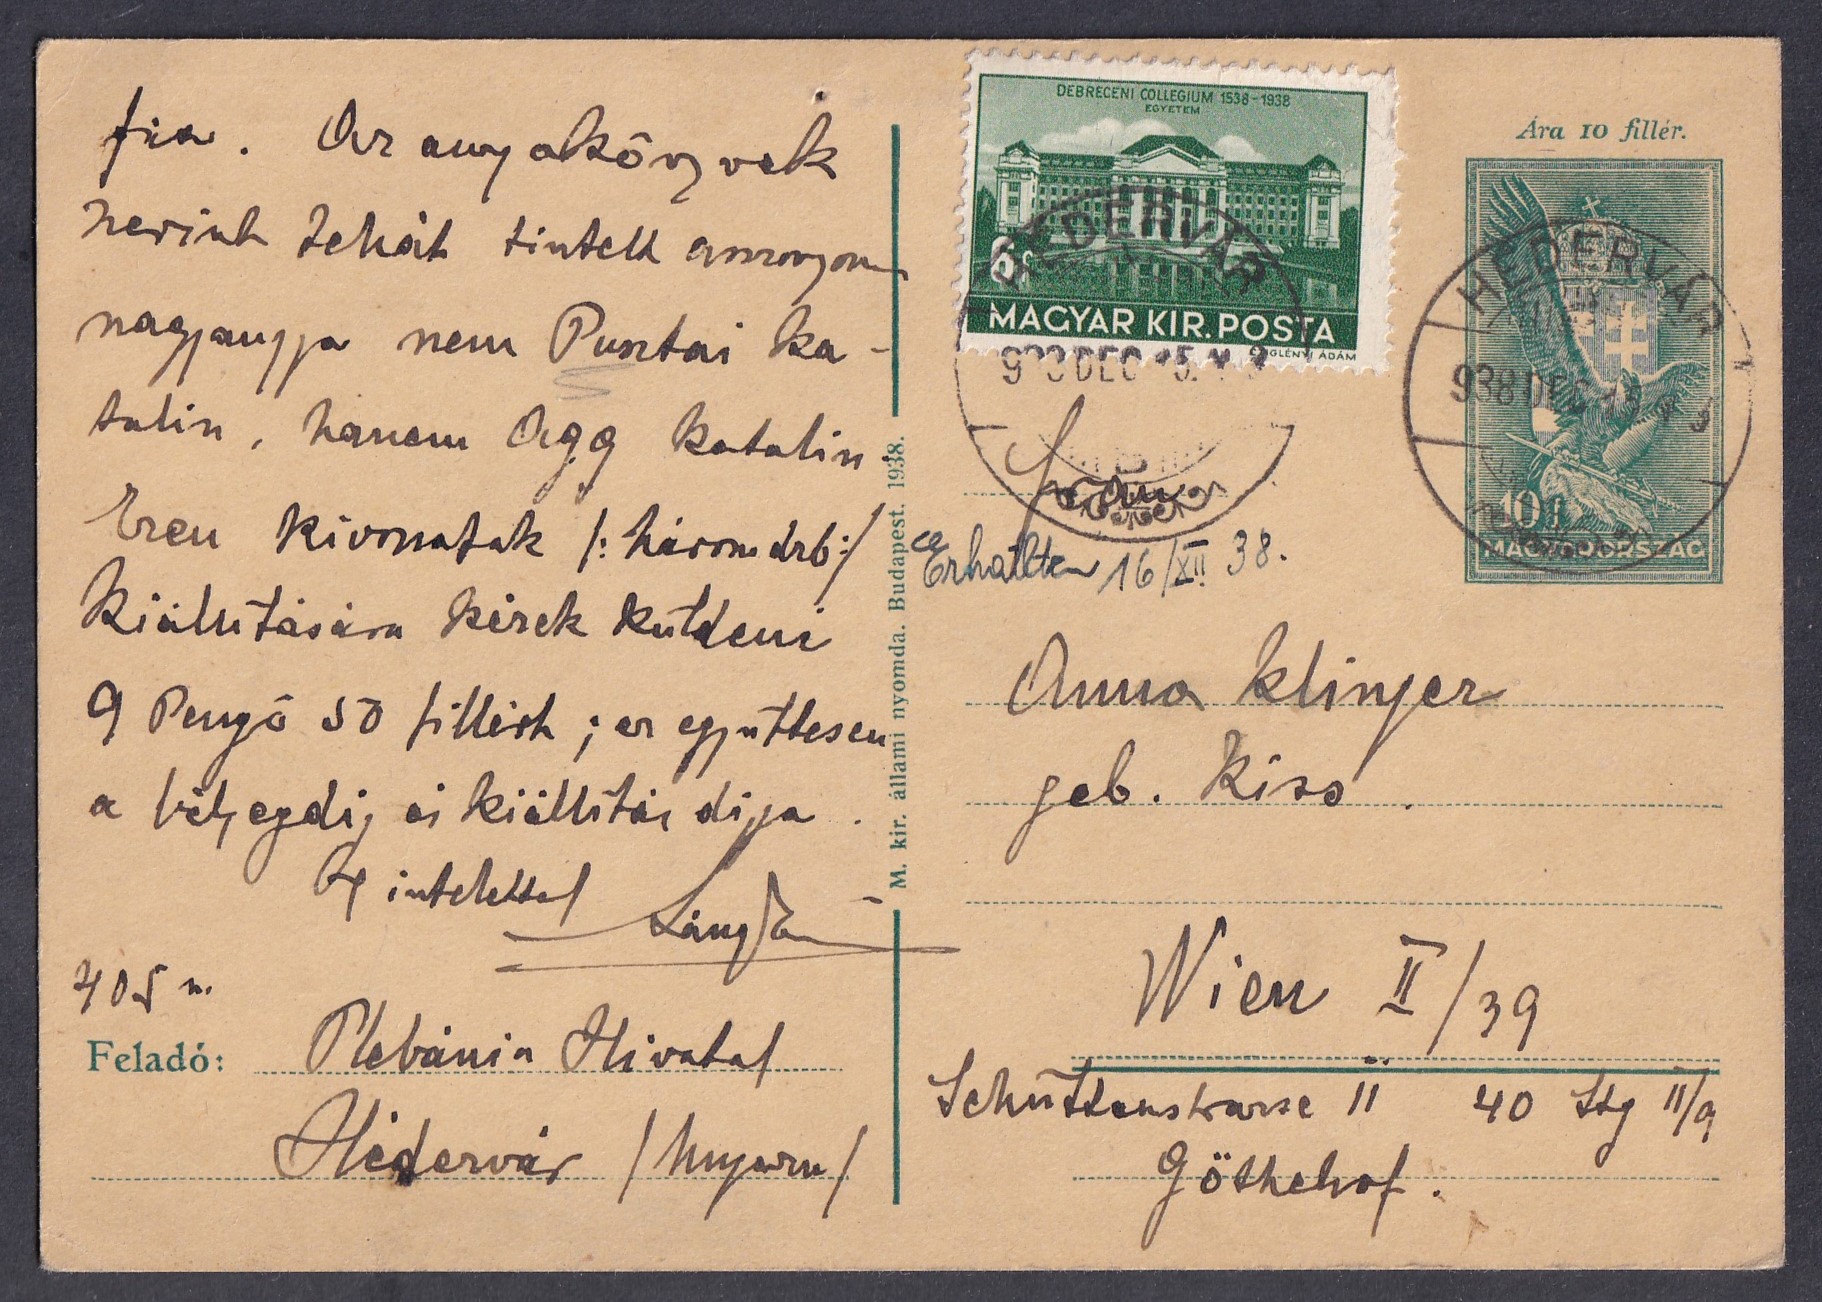 fia. Az anyakönyvek
szerint tehát tisztelt asszonyom
nagyanyja nem Pusztai Ka-
talin, hanem Agg Katalin.
Ezen kivonatok /: három drb :/
kiállítására kérek küldeni
9 Pengő 50 fillért ; ez együttesen
a bélyegdíj és kiállítás díja.
Tisztelettel
Láng
405 sz.
Feladó: Plébánia Hivatal
Hédervár /Ungarn/
M. kir. állami nyomda. Budapest. 1938.
DEBRECENI COLLEGIUM 1538-1938
EGYETEM
6f
MAGYAR KIR. POSTA
LÉGLÉNYI ÁDÁM
HÉDERVÁR
938 DEC 15
Ára 10 fillér.
HÉDERVÁR
938 DEC 15
10 f
MAGYARORSZÁG
Frau
Erhalten 16/XII. 38.
Anna Klinger
geb. Kiss.
Wien II/39
Schüttaustrasse II 40 Stg II/9
Göthehof.